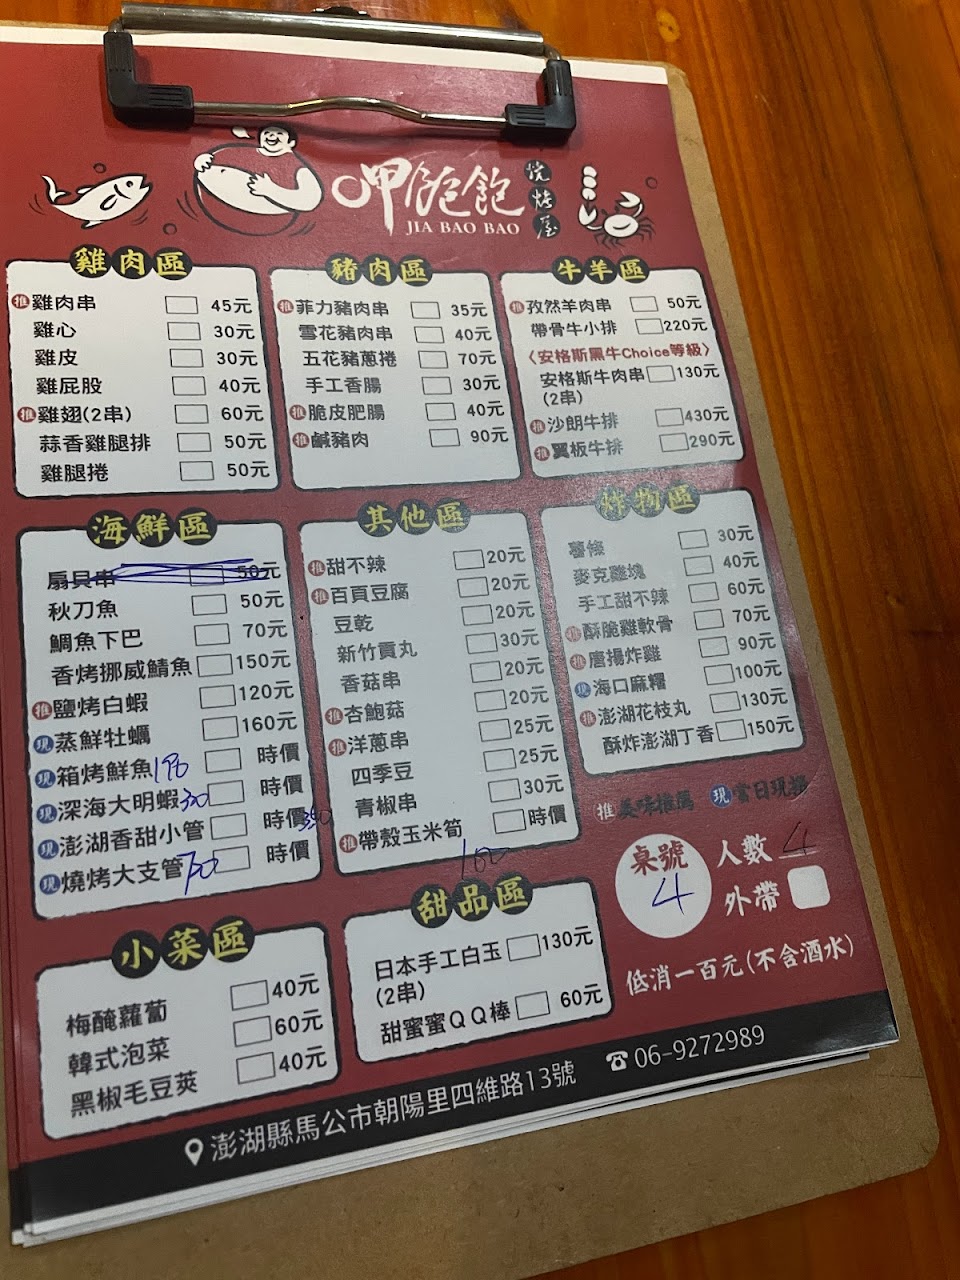 呷飽飽 燒烤屋
JIA BAO BAO
雞肉區
推 雞肉串 45元
雞心 30元
雞皮 30元
雞屁股 40元
推 雞翅(2串) 60元
蒜香雞腿排 50元
雞腿捲 50元
豬肉區
推 菲力豬肉串 35元
雪花豬肉串 40元
五花豬蔥捲 70元
手工香腸 30元
推 脆皮肥腸 40元
推 鹹豬肉 90元
牛羊區
推 孜然羊肉串 50元
帶骨牛小排 220元
〈安格斯黑牛Choice等級〉
安格斯牛肉串 130元
(2串)
推 沙朗牛排 430元
推 翼板牛排 290元
海鮮區
扇貝串 50元
秋刀魚 50元
鯛魚下巴 70元
香烤挪威鯖魚 150元
推 鹽烤白蝦 120元
現 蒸鮮牡蠣 160元
現 箱烤鮮魚 時價
現 深海大明蝦 時價
現 澎湖香甜小管 時價 350
現 燒烤大支管 時價
其他區
推 甜不辣 20元
推 百頁豆腐 20元
豆乾 20元
新竹貢丸 30元
香菇串 20元
推 杏鮑菇 20元
推 洋蔥串 25元
四季豆 25元
青椒串 30元
推 帶殼玉米筍 時價
100
炸物區
薯條 30元
麥克雞塊 40元
手工甜不辣 60元
推 酥脆雞軟骨 70元
推 唐揚炸雞 90元
現 海口麻糬 100元
推 澎湖花枝丸 130元
酥炸澎湖丁香 150元
推 美味推薦 現 當日現撈
桌號 4
人數 4
外帶
低消一百元(不含酒水)
小菜區
梅醃蘿蔔 40元
韓式泡菜 60元
黑椒毛豆莢 40元
甜品區
日本手工白玉 130元
(2串)
甜蜜蜜QQ棒 60元
澎湖縣馬公市朝陽里四維路13號 06-9272989